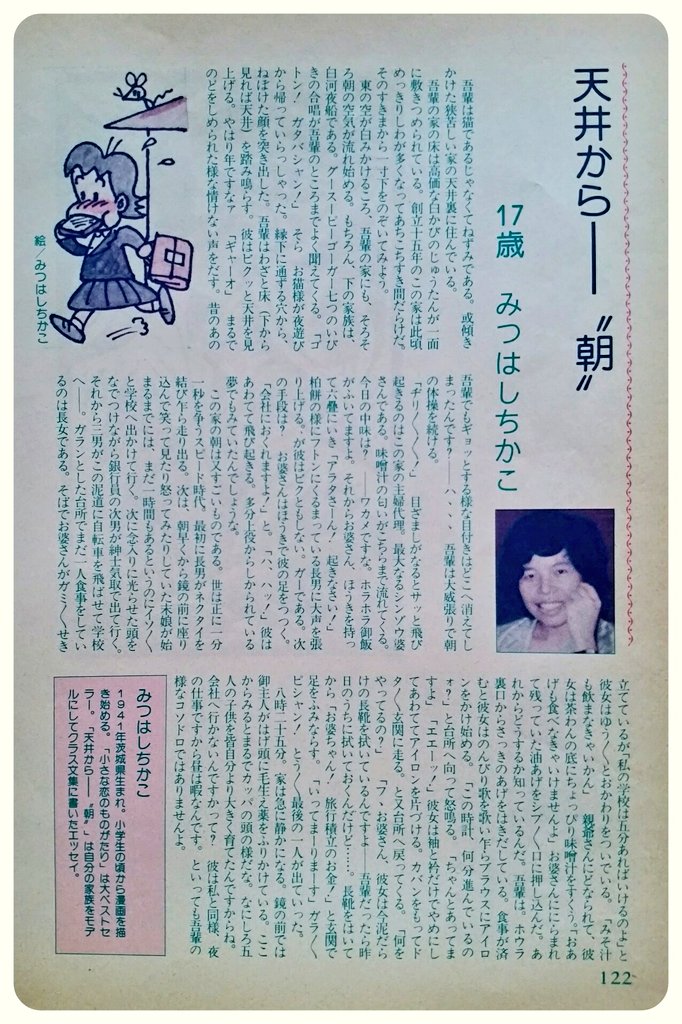 天井から――〝朝〟
17歳 みつはしちかこ
吾輩は猫であるじゃなくてねずみである。或傾き
かけた狭苦しい家の天井裏に住んでいる。
吾輩の家の床は高価な白かびのじゅうたんが一面
に敷きつめられている。創立十五年のこの家は此頃
めっきりしわが多くなってあちこちすき間だらけだ。
そのすきまから一寸下をのぞいてみよう。
東の空が白みかけるころ、吾輩の家にも、そろそ
ろ朝の空気が流れ始める。もちろん、下の家族は、
白河夜船である。グースーピーゴーガー七つのいび
きの合唱が吾輩のところまでよく聞えてくる。「ゴ
トン！ ガタバシャン！」 そら、お猫様が夜遊び
から帰っていらっしゃった。縁下に通ずる穴から、
ねぼけた顔を突き出した。吾輩はわざと床（下から
見れば天井）を踏み鳴らす。彼はビクッと天井を見
上げる。やはり年ですなァ 「ギャーオ」 まるで
のどをしめられた様な情けない声をだす。昔のあの
絵／みつはしちかこ
吾輩でもギョッとする様な目付きはどこへ消えてし
まったんです？――ハ、、、 吾輩は大威張りで朝
の体操を続ける。
「ヂリ／＼／＼！」 目ざましがなるとサッと飛び
起きるのはこの家の主婦代理、最大なるシンゾウ婆
さんである。味噌汁の匂いがこちらまで流れてくる。
今日の中味は？――ワカメですな。ホラホラ御飯
がふいてますよ。それからお婆さん、ほうきを持っ
て六畳にいき「アラタさーん！ 起きなさい！」
柏餅の様にフトンにくるまっている長男に大声を張
り上げる。が彼はビクともしない。ガーである。次
の手段は？ お婆さんはほうきで彼の足をつつく。
「会社におくれますよ！」と。「ハ、ハッ！」彼は
あわてて飛び起きる。多分上役からしかられている
夢でもみていたんでしょうな。
この家の朝は又すごいものである。世は正に一分
一秒を争うスピード時代、最初に長男がネクタイを
結び乍ら走り出る。次は、朝早くから鏡の前に座り
込んで笑って見たり怒ってみたりしていた末娘が始
まるまでには、まだ一時間もあるというのにイソ／＼
と学校へ出かけて行く。次に念入りに光らせた頭を
なでつけながら銀行員の次男が紳士気取で出て行く。
それから三男がこの泥道に自転車を飛ばせて学校
へ――。ガランとした台所でまだ一人食事をしてい
るのは長女である。そばでお婆さんがガミ／＼せき
立てているが「私の学校は五分あればいけるのよ」と
彼女はゆう／＼とおかわりをついている。「みそ汁
も飲まなきゃいかん」 親爺さんにどなられて、彼
女は茶わんの底にちょっぴり味噌汁をすくう。「おあ
げも食べなきゃいけませんよ」お婆さんににらまれ
て残っていた油あげをシブ／＼口に押し込んだ。あ
れからどうするか知っているんだ。吾輩は。ホウラ
裏口からさっきのあげをはきだしている。食事が済
むと彼女はのんびり歌を歌い乍らブラウスにアイロ
ンをかけ始める。「この時計、何分進んでいるの
ォ？」と台所へ向って怒鳴る。「ちゃんとあってま
すよ」「エエーッ」彼女は袖と衿だけでやめにし
てあわててアイロンを片づける。カバンをもってド
タ／＼玄関に走る。と又台所へ戻ってくる。「何を
やってるの？」「フ、お婆さん、彼女は今泥だら
けの長靴を拭いているんですよ――吾輩だったら昨
日のうちに拭いておくんだけど……。長靴をはいて
から「お婆ちゃん！ 旅行積立のお金！」と玄関で
足をふみならす。「いってまーりまーす」ガラ／＼
ピシャン！ とう／＼最後の一人が出ていった。
八時二十五分。家は急に静かになる。鏡の前では
御主人がはげ頭に毛生え薬をふりかけている。ここ
からみるとまるでカッパの頭の様だな。なにしろ五
人の子供を皆自分より大きく育てたんですからね。
会社へ行かないんですかって？ 彼は私と同様、夜
の仕事ですから昼は暇なんです。といっても吾輩の
様なコソドロではありませんよ。
みつはしちかこ
1941年茨城県生まれ。小学生の頃から漫画を描
き始める。「小さな恋のものがたり」は大ベストセ
ラー。「天井から――〝朝〟」は自分の家族をモデ
ルにしてクラス文集に書いたエッセイ。
122